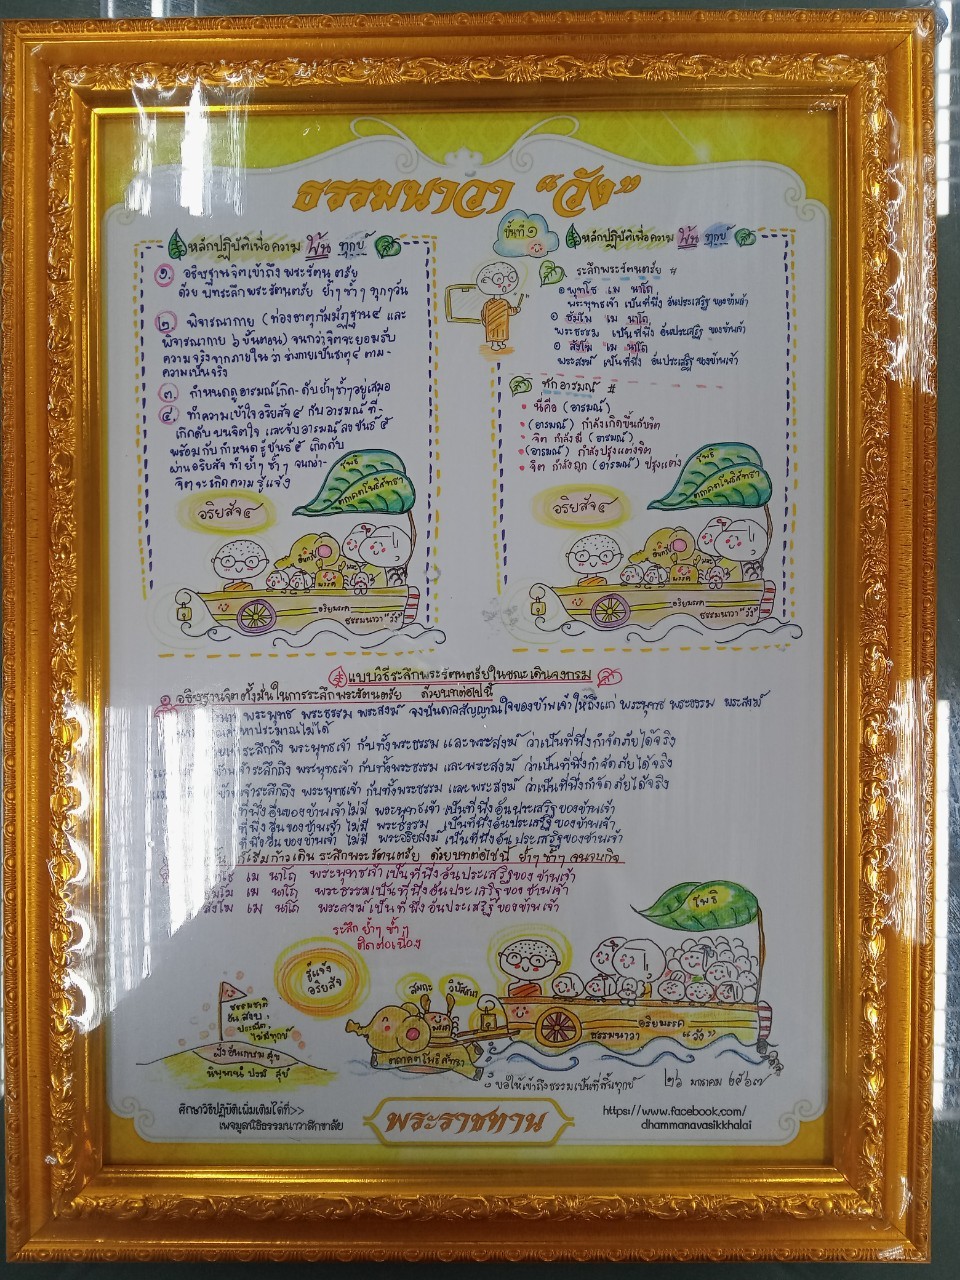 ธรรมนาวา "วัง"
หลักปฏิบัติเพื่อความ พ้น ทุกข์
๑. อธิษฐานจิตเข้าถึง พระรัตนตรัย
ด้วย บทระลึกพระรัตนตรัย ย้ำๆ ซ้ำๆ ทุกๆวัน
๒. พิจารณากาย (ท่องธาตุกัมมัฏฐาน๔ และ
พิจารณากาย ๖ ขั้นตอน) จนกว่าจิตจะยอมรับ
ความจริงจากภายในว่า ร่างกายเป็นธาตุ๔ ตาม-
ความเป็นจริง
๓. กำหนดดูอารมณ์เกิด-ดับย้ำๆซ้ำๆอยู่เสมอ
๔. ทำความเข้าใจอริยสัจ๔ กับอารมณ์ ที่-
เกิดดับ บนจิตใจ และจับอารมณ์ ลงขันธ์ ๕
พร้อมกับ กำหนดรู้ขันธ์ ๕ เกิดดับ
ผ่านอริยสัจ ทำย้ำๆ ซ้ำๆ จนกว่า-
จิตจะเกิดความ รู้แจ้ง
อริยสัจ๔
โพธิ
ตถาคตโพธิสัทธา
มรรค
อริยมรรค
ธรรมนาวา "วัง"
ขั้นที่ ๑
หลักปฏิบัติเพื่อความ พ้น ทุกข์
ระลึกพระรัตนตรัย #
พุทโธ เม นาโถ
พระพุทธเจ้า เป็นที่พึ่ง อันประเสริฐ ของข้าพเจ้า
ธัมโม เม นาโถ
พระธรรม เป็นที่พึ่ง อันประเสริฐ ของข้าพเจ้า
สังโฆ เม นาโถ
พระสงฆ์ เป็นที่พึ่ง อันประเสริฐ ของข้าพเจ้า
ทักอารมณ์ #
• นี่คือ (อารมณ์)
• (อารมณ์) กำลังเกิดขึ้นกับจิต
• จิต กำลังมี (อารมณ์)
• (อารมณ์) กำลังปรุงแต่งจิต
• จิต กำลังถูก (อารมณ์) ปรุงแต่ง
อริยสัจ๔
โพธิ
ตถาคตโพธิสัทธา
มรรค
อริยมรรค
ธรรมนาวา "วัง"
แบบวิธีระลึกพระรัตนตรัยในขณะเดินจงกรม
อธิษฐานจิตตั้งมั่นในการระลึกพระรัตนตรัย ด้วยบทต่อไปนี้
พระพุทธ พระธรรม พระสงฆ์ จงบันดาลสัญญาณใจของข้าพเจ้า ให้ถึงแก่ พระพุทธ พระธรรม พระสงฆ์
หาประมาณไม่ได้
ระลึกถึง พระพุทธเจ้า กับทั้งพระธรรม และพระสงฆ์ ว่าเป็นที่พึ่งกำจัดภัยได้จริง
ข้าพเจ้าระลึกถึง พระพุทธเจ้า กับทั้งพระธรรม และพระสงฆ์ ว่าเป็นที่พึ่งกำจัดภัยได้จริง
เจ้าระลึกถึง พระพุทธเจ้า กับทั้งพระธรรม และพระสงฆ์ ว่าเป็นที่พึ่งกำจัดภัยได้จริง
ที่พึ่งอื่นของข้าพเจ้าไม่มี พระพุทธเจ้า เป็นที่พึ่งอันประเสริฐของข้าพเจ้า
ที่พึ่งอื่นของข้าพเจ้า ไม่มี พระธรรม เป็นที่พึ่งอันประเสริฐของข้าพเจ้า
ที่พึ่งอื่น ของข้าพเจ้า ไม่มี พระอริยสงฆ์ เป็นที่พึ่งอันประเสริฐของข้าพเจ้า
เริ่มก้าวเดิน ระลึกพระรัตนตรัย ด้วยบทต่อไปนี้ ย้ำๆ ซ้ำๆ
เม นาโถ พระพุทธเจ้าเป็นที่พึ่งอันประเสริฐของข้าพเจ้า
เม นาโถ พระธรรมเป็นที่พึ่งอันประเสริฐของ ข้าพเจ้า
สังโฆ เม นาโถ พระสงฆ์เป็นที่พึ่งอันประเสริฐของข้าพเจ้า
ระลึก ย้ำๆ ซ้ำๆ
ติดต่อเนื่อง
โพธิ
รู้แจ้ง
อริยสัจ
สมถะ
วิปัสสนา
มรรค
ธรรมชาติ
อัน สงบ,
ประณีต,
ไม่มีทุกข์
ฝั่งอันเกษม สุข
นิพพานํ ปรมํ สุขํ
ตถาคตโพธิสัทธา
อริยมรรค
ธรรมนาวา "วัง"
ขอให้เข้าถึงธรรมเป็นที่สิ้นทุกข์
๒๖ มกราคม ๒๕๖๗
ศึกษาวิธีปฏิบัติเพิ่มเติมได้ที่>>
เพจมูลนิธิธรรมนาวาสิกขาลัย
พระราชทาน
https://www.facebook.com/
dhammanavasikkhalai